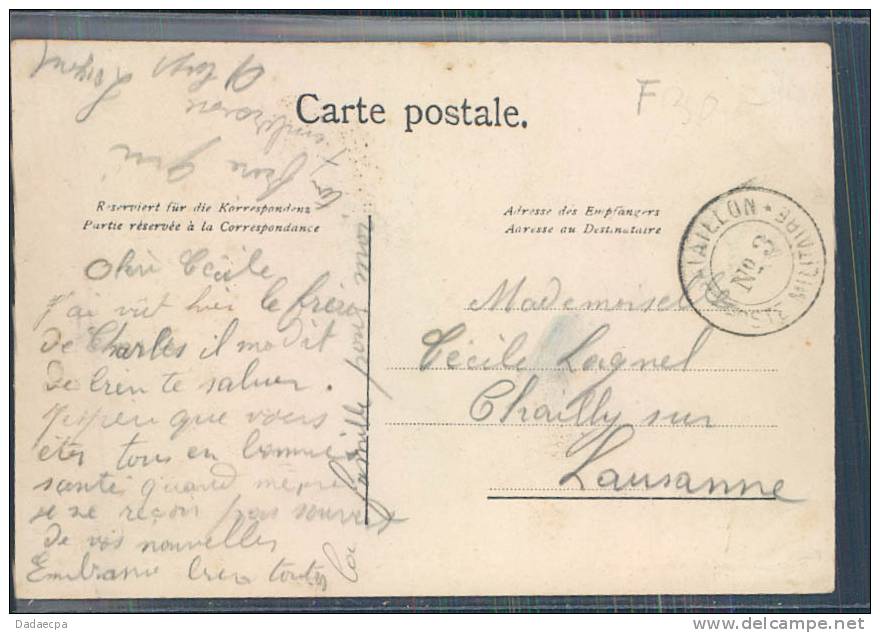 Carte postale.
Reserviert für die Korrespondenz
Partie réservée à la Correspondance
Adresse des Empfängers
Adresse au Destinataire
BATAILLON * POSTE MILITAIRE
No. 3
Chère Cécile
j'ai vut hier le frère
de Charles il ma dit
de bien te saluer.
J'esper que vous
ête tous en bonne
santé quand même
je ne reçoi pas souvent
de vos nouvelles
Embrasse bien toute
la famille pour moi
Ton frère qui
t'embrasse
Mademoisel
Cécile Lagnel
Chailly sur
Lausanne
Dadaecpa
www.delcampe.net